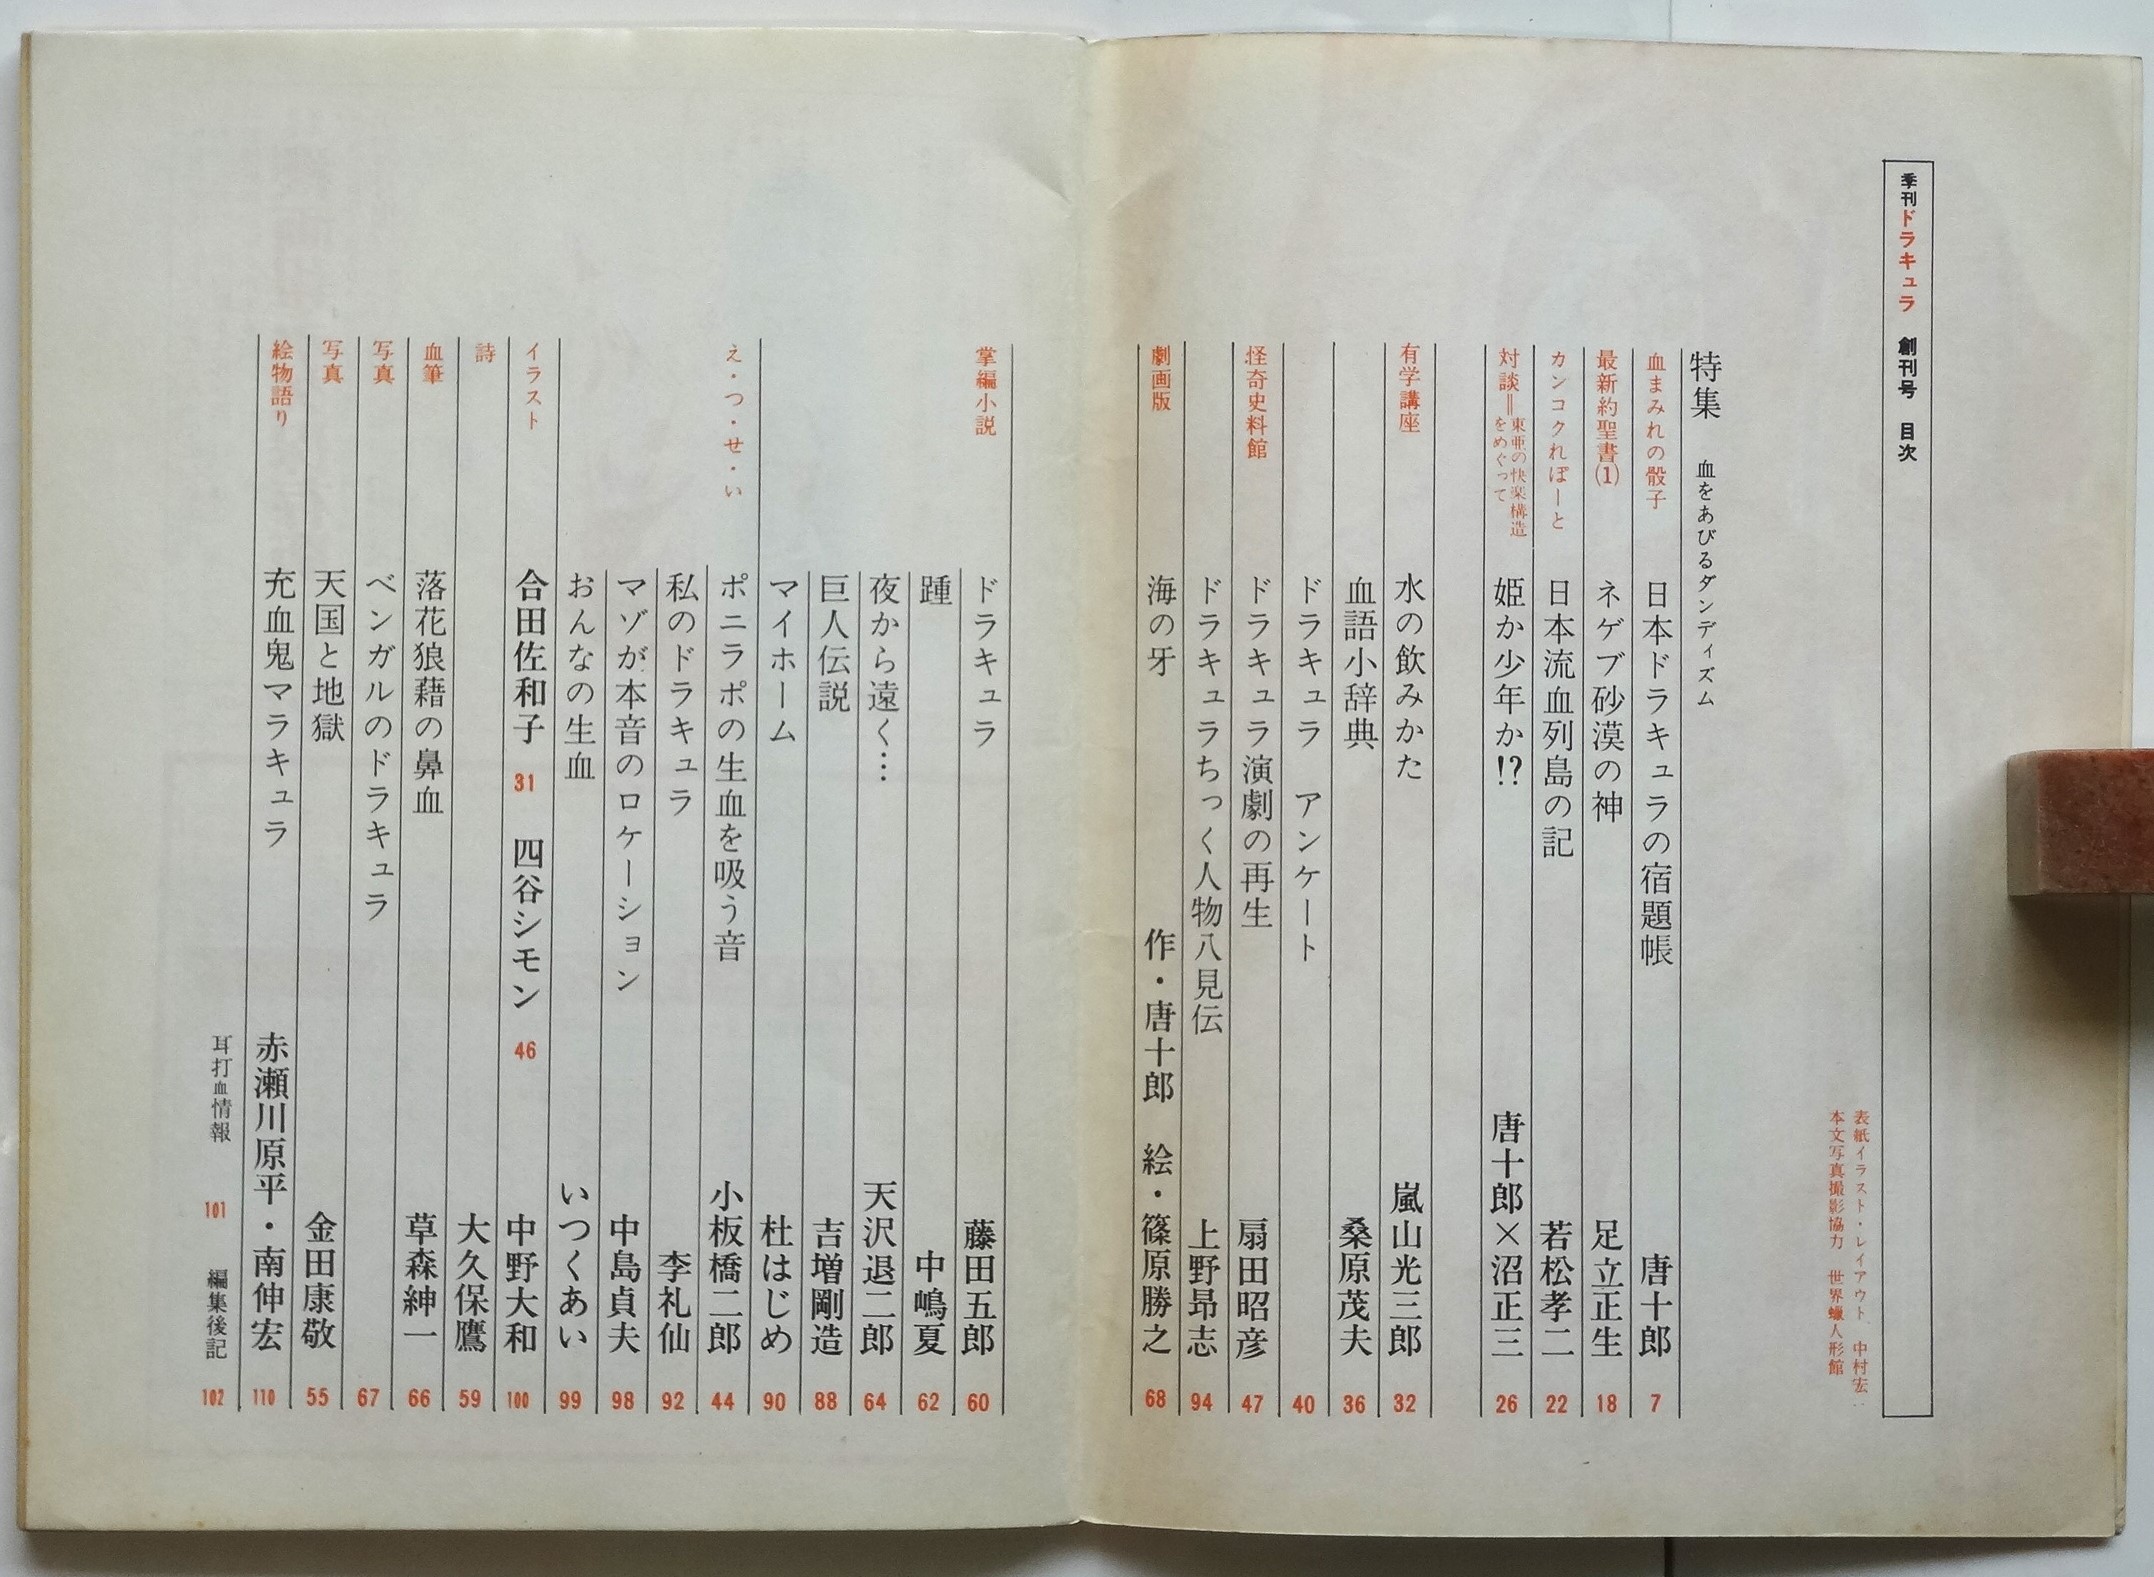 季刊ドラキュラ 創刊号 目次
表紙イラスト・レイアウト 中村宏
本文写真撮影協力 世界蠟人形館
特集 血をあびるダンディズム
血まみれの骰子 日本ドラキュラの宿題帳 唐十郎 7
最新約聖書(1) ネゲブ砂漠の神 足立正生 18
カンコクれぽーと 日本流血列島の記 若松孝二 22
対談=東亜の快楽構造をめぐって 姫か少年か!? 唐十郎×沼正三 26
有学講座 水の飲みかた 嵐山光三郎 32
血語小辞典 桑原茂夫 36
ドラキュラ アンケート 40
怪奇史料館 ドラキュラ演劇の再生 扇田昭彦 47
ドラキュラちっく人物八見伝 上野昂志 94
劇画版 海の牙 作・唐十郎 絵・篠原勝之 68
掌編小説 ドラキュラ 藤田五郎 60
踵 中嶋夏 62
夜から遠く… 天沢退二郎 64
巨人伝説 吉増剛造 88
マイホーム 杜はじめ 90
え・つ・せ・い ポニラポの生血を吸う音 小板橋二郎 44
私のドラキュラ 李礼仙 92
マゾが本音のロケーション 中島貞夫 98
おんなの生血 いつくあい 99
イラスト 合田佐和子 31 四谷シモン 46 中野大和 100
詩 大久保鷹 59
血筆 落花狼藉の鼻血 草森紳一 66
写真 ベンガルのドラキュラ 67
写真 天国と地獄 金田康敬 55
絵物語り 充血鬼マラキュラ 赤瀬川原平・南伸宏 110
耳打血情報 101 編集後記 102